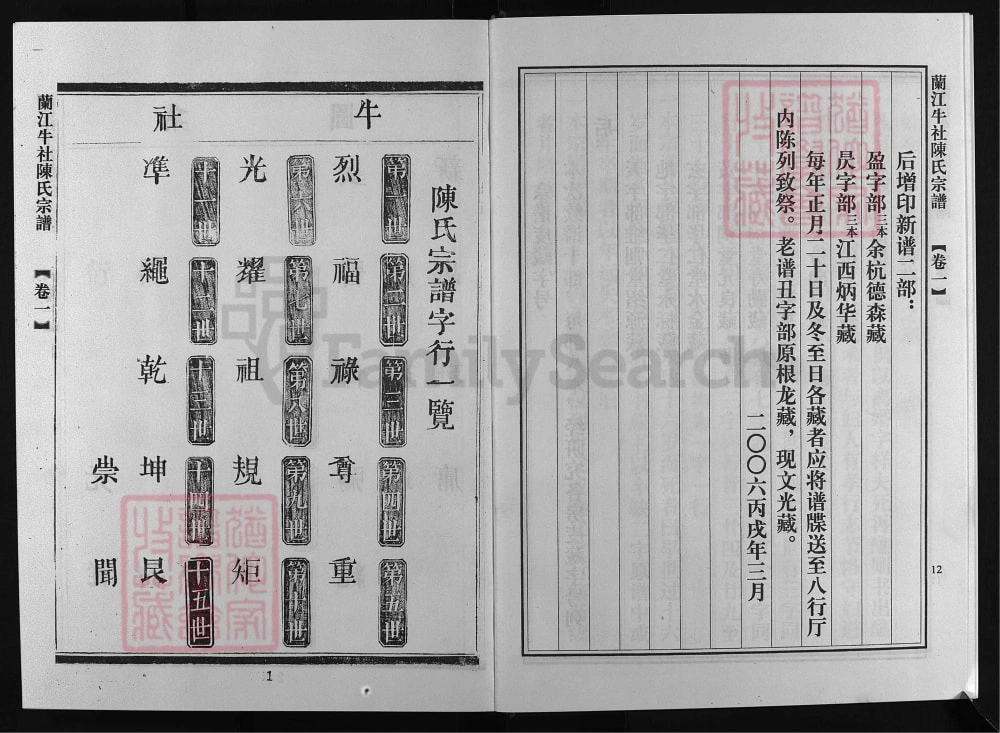 蘭江牛社陳氏宗譜
【卷一】
12
后增印新谱二部：
盈字部三本余杭德森藏
昃字部三本江西炳华藏
每年正月二十日及冬至日各藏者应将谱牒送至八行厅
内陈列致祭。老谱丑字部原根龙藏，现文光藏。
二〇〇六丙戌年三月
陳氏宗譜字行一覽
牛社
第一世 第二世 第三世 第四世 第五世
烈 福 祿 尊 重
第六世 第七世 第八世 第九世 第十世
光 耀 祖 規 矩
十一世 十二世 十三世 十四世 十五世
準 繩 乾 坤 艮
崇 聞
蘭江牛社陳氏宗譜
【卷一】
1
FamilySearch